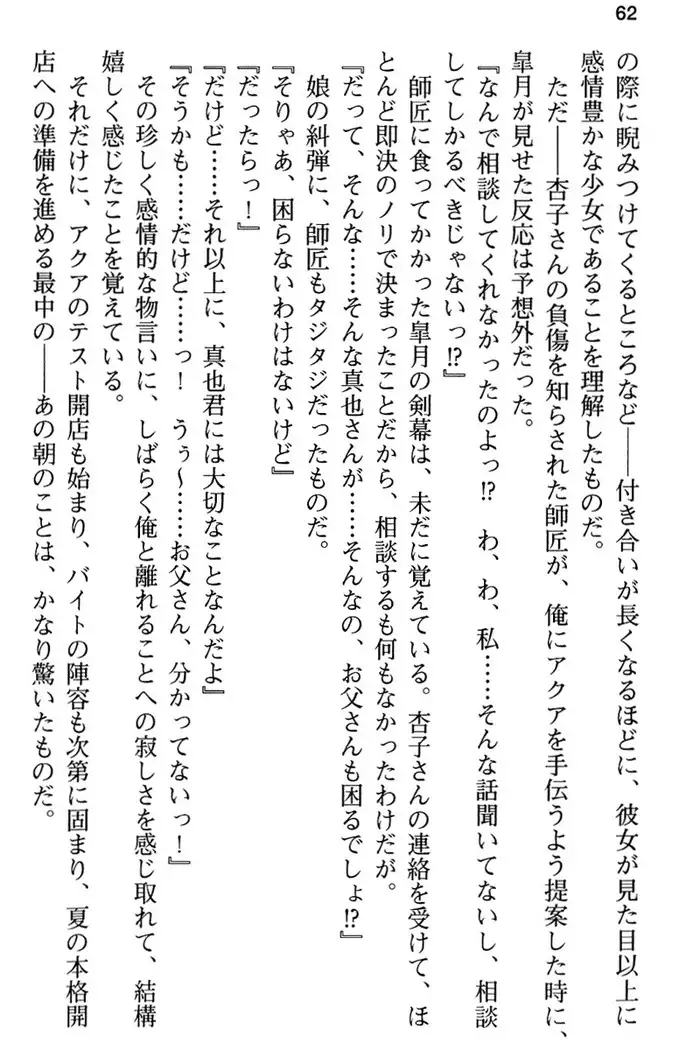 62
の際に睨みつけてくるところなど――付き合いが長くなるほどに、彼女が見た目以上に
感情豊かな少女であることを理解したものだ。
ただ――杏子さんの負傷を知らされた師匠が、俺にアクアを手伝うよう提案した時に、
皐月が見せた反応は予想外だった。
『なんで相談してくれなかったのよっ!? わ、わ、私……そんな話聞いてないし、相談
してしかるべきじゃないっ!?』
師匠に食ってかかった皐月の剣幕は、未だに覚えている。杏子さんの連絡を受けて、ほ
とんど即決のノリで決まったことだから、相談するも何もなかったわけだが。
『だって、そんな……そんな真也さんが……そんなの、お父さんも困るでしょ!?』
娘の糾弾に、師匠もタジタジだったものだ。
『そりゃあ、困らないわけはないけど』
『だったらっ！』
『だけど……それ以上に、真也君には大切なことなんだよ』
『そうかも……だけど……っ！　うぅ～……お父さん、分かってないっ！』
その珍しく感情的な物言いに、しばらく俺と離れることへの寂しさを感じ取れて、結構
嬉しく感じたことを覚えている。
それだけに、アクアのテスト開店も始まり、バイトの陣容も次第に固まり、夏の本格開
店への準備を進める最中の――あの朝のことは、かなり驚いたものだ。